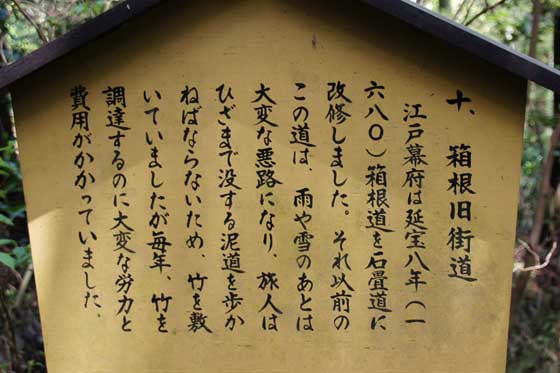 十、箱根旧街道
江戸幕府は延宝八年（一
六八〇）箱根道を石畳道に
改修しました。それ以前の
この道は、雨や雪のあとは
大変な悪路になり、旅人は
ひざまで没する泥道を歩か
ねばならないため、竹を敷
いていましたが毎年、竹を
調達するのに大変な労力と
費用がかかっていました、